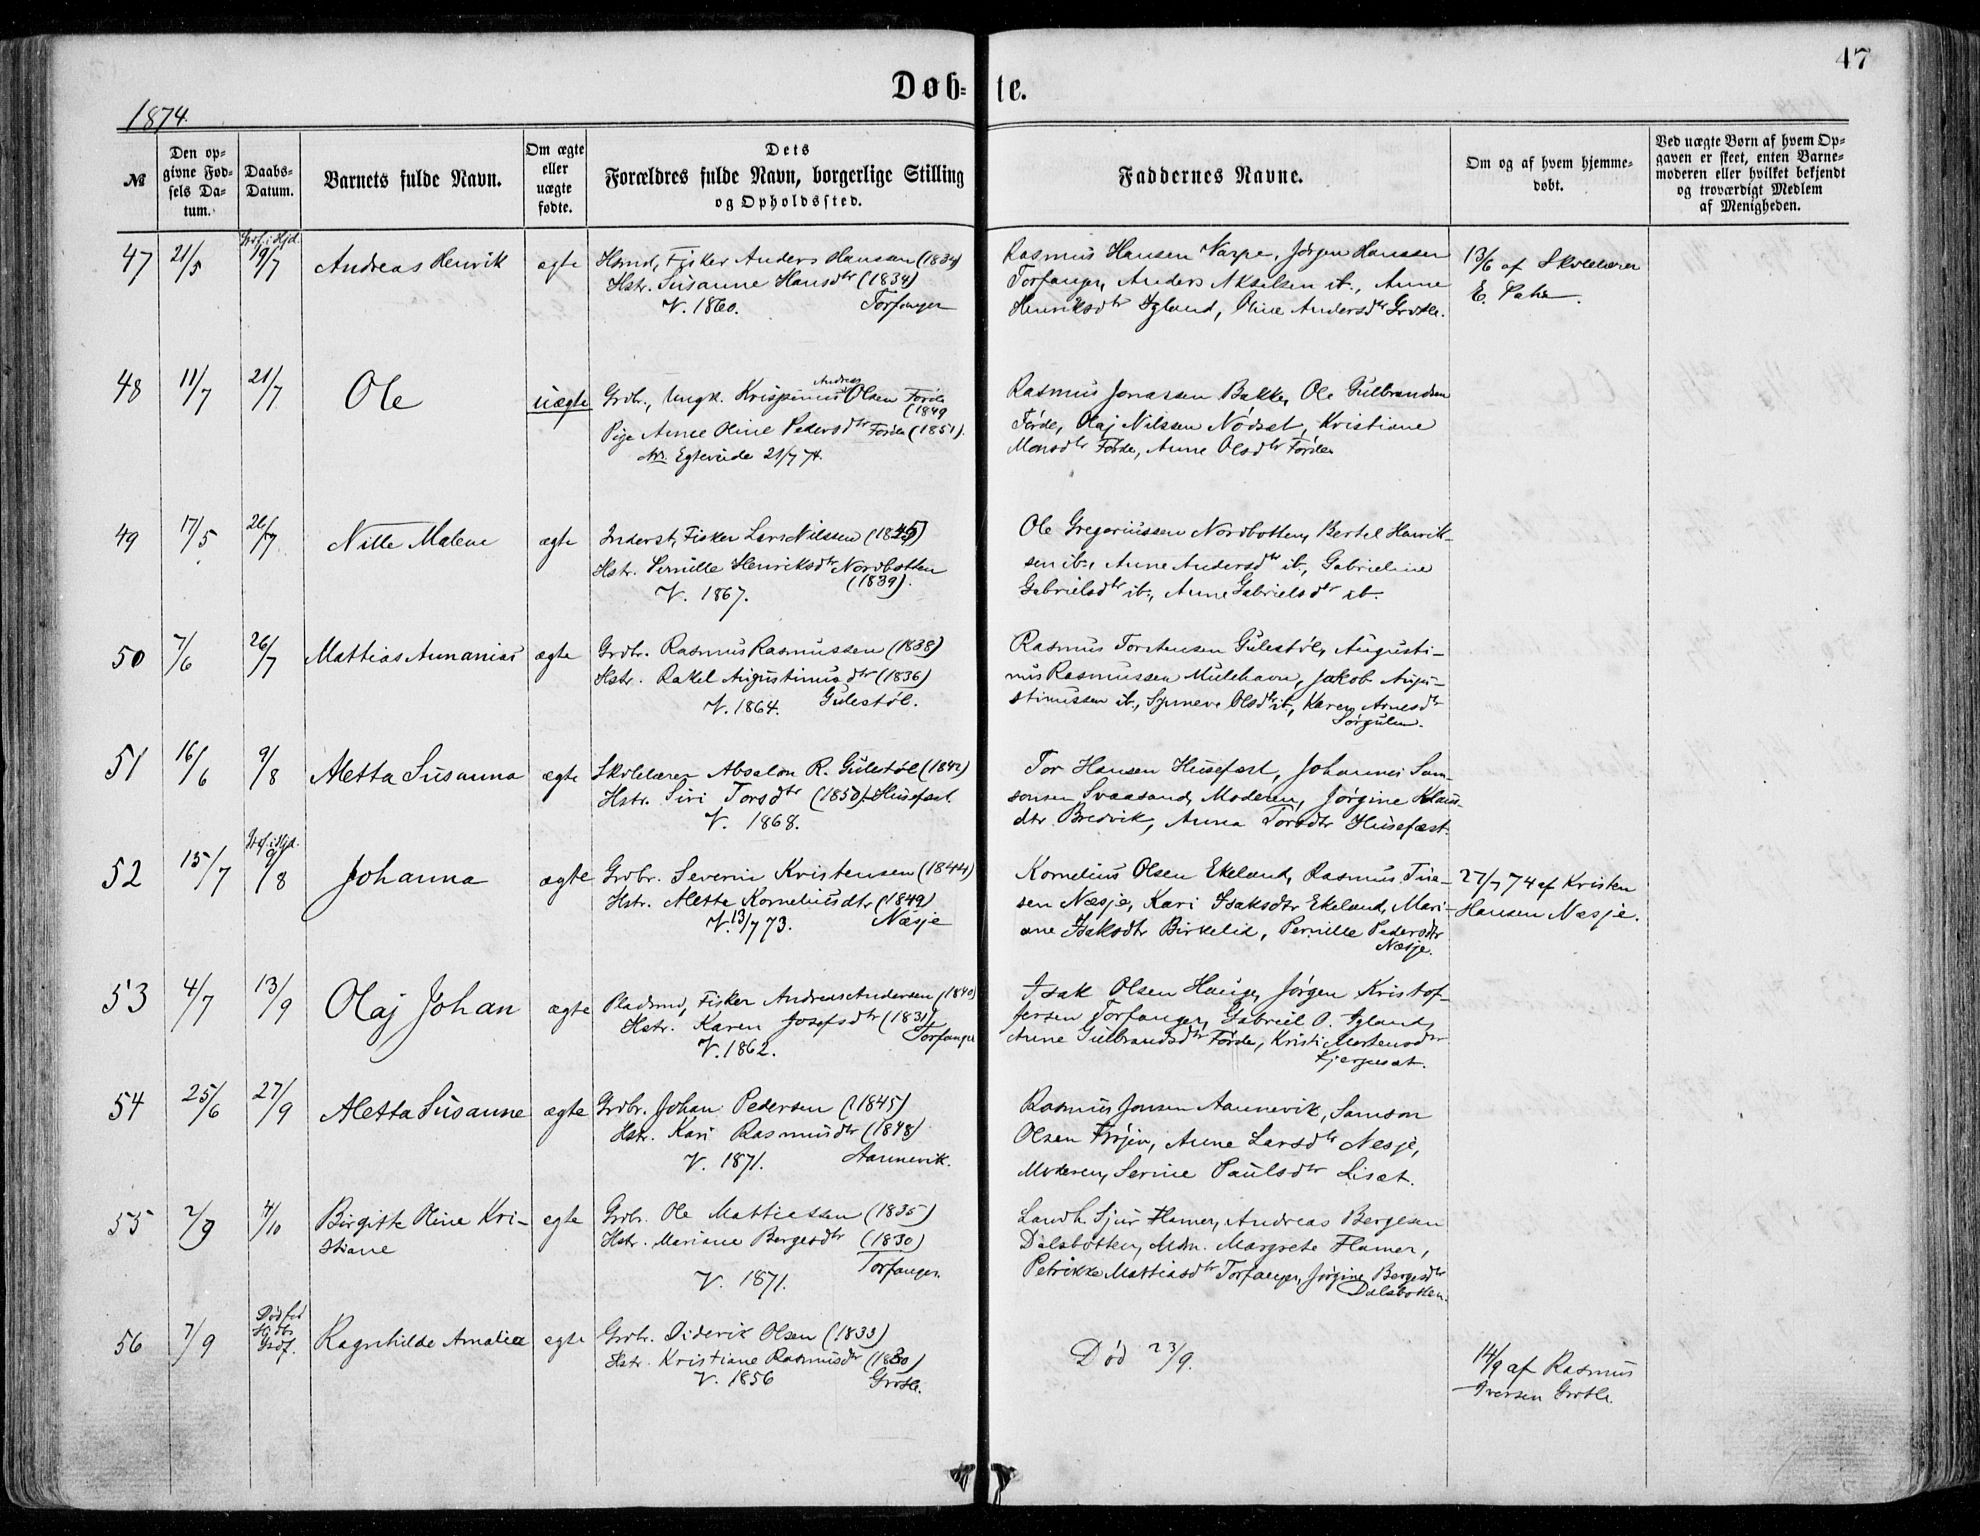 47
Døb-te.
1874.
№
Den op-
givne Fød-
sels Da-
tum.
Daabs-
Datum.
Barnets fulde Navn.
Om ægte
eller
uægte
fødte.
Dets
Forældres fulde Navn, borgerlige Stilling
og Opholdssted.
Faddernes Navne.
Om og af hvem hjemme-
døbt.
Ved uægte Børn af hvem Op-
gaven er skeet, enten Barne-
moderen eller hvilket bekjendt
og troværdigt Medlem
af Menigheden.
47 21/5 19/7 Andreas Henrik ægte
Fisker Anders Hansen (1834)
Hstr. Susanne Hansdtr (1834)
V. 1860. Torfanger
Rasmus Hansen Varpe, Jørgen Hanssen
Torfanger, Anders Akselsen ib., Anne
Henriksdtr Igland, Oline Andersdtr Grotle.
13/6 af Skolelærer
E.
48 11/7 21/7 Ole uægte
Andreas
Grdbr., Ungk. Krispinus Olsen Førde
(1849
Pige Anne Oline Pedersdtr Førde (1851).
Egteviede 21/7 74.
Rasmus Jonassen Bakke, Ole Gulbrandsen
Førde, Olaj Nilssen Nødset, Kristiane
Monsdtr Førde, Anne Olsdtr Førde.
49 17/5 26/7 Nille Malene ægte
Inderst, Fisker Lars Nilssen (1845)
Hstr. Pernille Henriksdtr Nordbotten
(1839).
V. 1867.
Ole Gregoriussen Nordbotten, Bertel Henrik-
sen ib., Anne Andersdtr ib., Gabrieline
Gabrielsdtr ib., Anne Gabrielsdtr ib.
50 7/6 26/7 Mattias Annanias ægte
Grdbr. Rasmus Rasmussen (1838)
Hstr. Rakel Augustinusdtr (1836)
V. 1864. Gulestøl.
Rasmus Torstensen Gulestøl, Augusti-
nus Rasmussen Mulehavn, Jakob Augu-
stinussen ib., Synneve Olsdtr ib., Karen Arnesdtr
Sørgulen.
51 16/6 9/8 Aletta Susanna ægte
Skolelærer Absalon R. Gulestøl (1842)
Hstr. Siri Torsdtr (1850) Husefæst
V. 1868.
Tor Hansen Husefæst, Johannes Sam-
sonsen Svaasand, Moderen, Jørgine Klaus-
dtr Bredvik, Anna Torsdtr Husefæst.
52 15/7 9/8 Johanna ægte
Grdbr. Severin Kristensen (1844)
Hstr. Aletta Korneliusdtr (1849)
V. 13/7 73. Næsje
Kornelius Olsen Ekeland, Rasmus
sen Næsje, Kari Isaksdtr Ekeland, Mari-
ane Isaksdtr Birkelid, Pernille Pedersdtr
Næsje.
27/7 74 af Kristen
Hansen Næsje.
53 4/7 13/9 Olaj Johan ægte
Pladsmd, Fisker Andreas Andersen (1840)
Hstr. Karen Josefsdtr (1831)
Torfanger
V. 1862.
Isak Olsen Hauge, Jørgen Kristof-
fersen Torfanger, Gabriel O. Igland,
Anne Gulbrandsdtr Førde, Kristi Mortensdtr
54 25/6 27/9 Aletta Susanne ægte
Grdbr. Johan Pedersen (1845)
Hstr. Kari Rasmusdtr (1848)
V. 1871. Aannevik.
Rasmus Jonsen Aannevik, Samson
Olsen Frøjen, Anne Larsdtr Nesje,
Moderen, Serine Paulsdtr Liset.
55 2/9 4/10 Birgitte Oline Kri- egte
stiane
Grdbr. Ole Mattiassen (1835)
Hstr. Mariane Bergesdtr (1830)
Torfanger.
V. 1871.
Landh. Sjur Hamer, Andreas Bergesen
Dalsbotten, Mdm. Margrete Hamer,
Petrikke Mattiasdtr Torfanger, Jørgine Bergesdtr
Dalsbotten.
56 7/9 Ragnhilde Amalia egte
Grdbr. Diderik Olsen (1833)
Hstr. Kristiane Rasmusdtr (1830)
V. 1856 Grotle.
Død 23/9.
14/9 af Rasmus
Iversen Grotle.